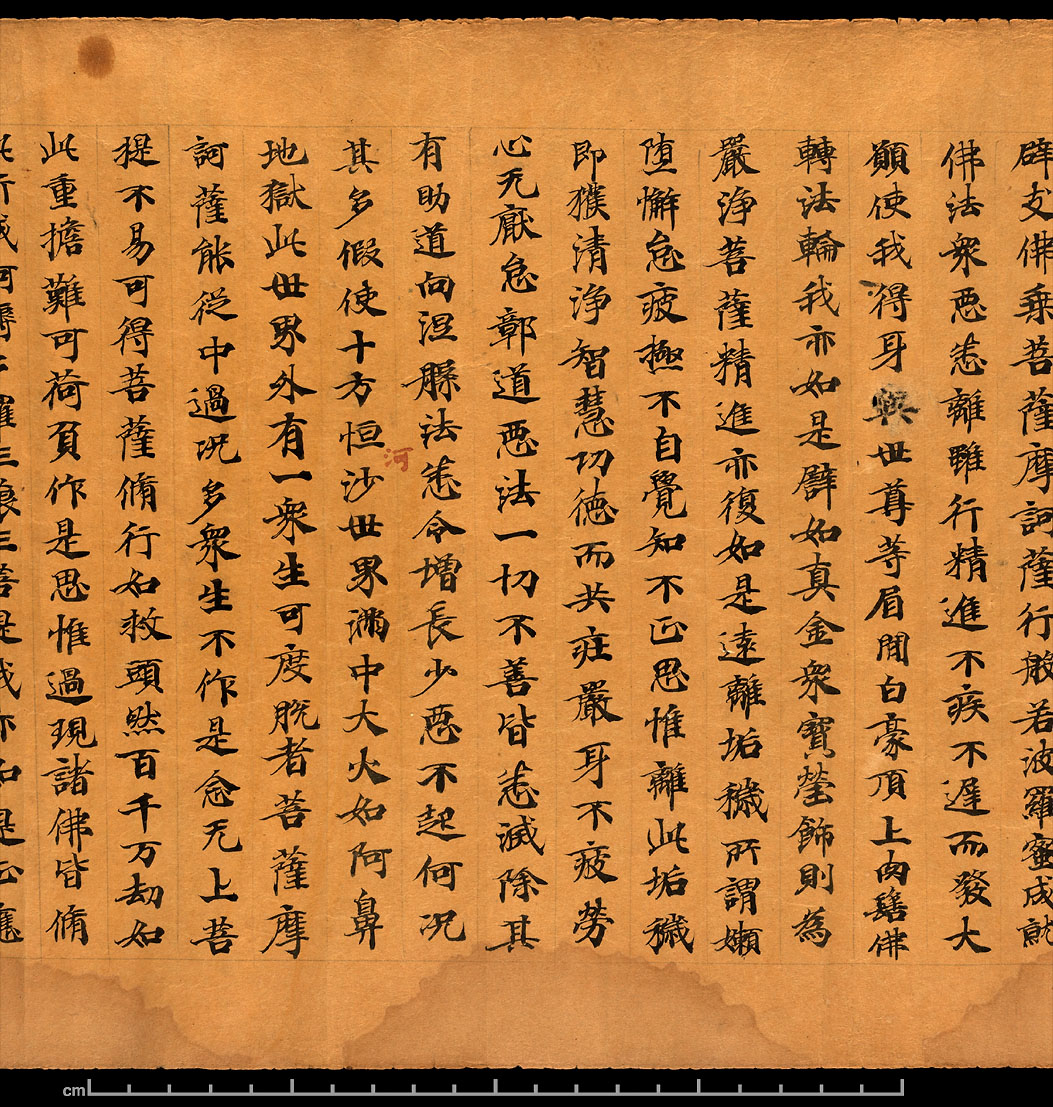 辟支佛乗菩薩摩訶薩行般若波羅蜜成就
佛法衆惡悉離雖行精進不疾不遅而發大
願使我得身如世尊等眉間白豪頂上肉髻佛
轉法輪我亦如是譬如真金衆寶瑩飾則為
嚴淨菩薩精進亦復如是遠離垢穢所謂嬾
墮懈怠疲極不自覺知不正思惟離此垢穢
即獲清淨智慧功德而共疰嚴身不疲勞
心无厭怠鄣道惡法一切不善皆悉滅除其
有助道向涅縣法悉令增長少惡不起何況
其多假使十方恒河沙世界滿中大火如阿鼻
地獄此世界外有一衆生可度脱者菩薩摩
訶薩能從中過況多衆生不作是念无上菩
提不易可得菩薩脩行如救頭然百千万劫如
此重擔難可荷負作是思惟過現諸佛皆脩